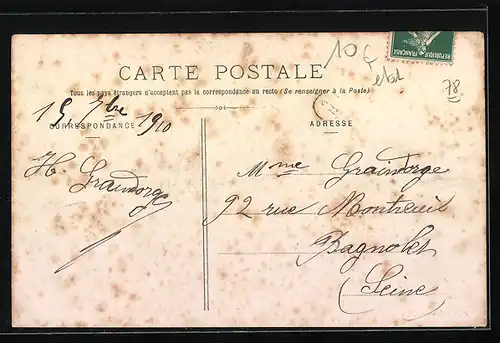 10 f
etat
78
REPUBLIQUE FRANÇAISE
CARTE POSTALE
Tous les pays étrangers n'acceptent pas la correspondance au recto (Se renseigner à la Poste)
15 7bre 1910
CORRESPONDANCE
ADRESSE
H. Graindorge
Mme Graindorge
92 rue Montreuil
Bagnolet
(Seine)